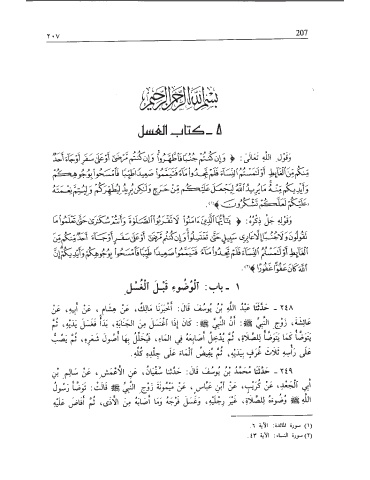 207
٢٠٧
بسم الله الرحمن الرحيم
٥ ـ كتاب الغسل
وقول اللّٰهِ تَعَالَى: ﴿ وَإِن كُنتُمْ جُنُبًا فَاطَّهَّرُوا وَإِن كُنتُم مَّرْضَى أَوْ عَلَى سَفَرٍ أَوْ جَاءَ أَحَدٌ
مِّنكُم مِّنَ الْغَائِطِ أَوْ لَامَسْتُمُ النِّسَاءَ فَلَمْ تَجِدُوا مَاءً فَتَيَمَّمُوا صَعِيدًا طَيِّبًا فَامْسَحُوا بِوُجُوهِكُمْ
وَأَيْدِيكُم مِّنْهُ مَا يُرِيدُ اللَّهُ لِيَجْعَلَ عَلَيْكُم مِّنْ حَرَجٍ وَلَكِن يُرِيدُ لِيُطَهِّرَكُمْ وَلِيُتِمَّ نِعْمَتَهُ
عَلَيْكُمْ لَعَلَّكُمْ تَشْكُرُونَ ﴾(١)
وقوله جل ذكره: ﴿ يَا أَيُّهَا الَّذِينَ آمَنُوا لَا تَقْرَبُوا الصَّلَاةَ وَأَنتُمْ سُكَارَى حَتَّى تَعْلَمُوا مَا
تَقُولُونَ وَلَا جُنُبًا إِلَّا عَابِرِي سَبِيلٍ حَتَّى تَغْتَسِلُوا وَإِن كُنتُم مَّرْضَى أَوْ عَلَى سَفَرٍ أَوْ جَاءَ أَحَدٌ مِّنكُم مِّنَ
الْغَائِطِ أَوْ لَامَسْتُمُ النِّسَاءَ فَلَمْ تَجِدُوا مَاءً فَتَيَمَّمُوا صَعِيدًا طَيِّبًا فَامْسَحُوا بِوُجُوهِكُمْ وَأَيْدِيكُمْ إِنَّ
اللَّهَ كَانَ عَفُوًّا غَفُورًا ﴾(٢)
١ ـ باب: الْوُضُوءِ قَبْلَ الْغُسْلِ
٢٤٨ ـ حَدَّثَنَا عَبْدُ اللّٰهِ بْنُ يُوسُفَ قَالَ: أَخْبَرَنَا مَالِكٌ، عَنْ هِشَامٍ، عَنْ أَبِيهِ، عَنْ
عَائِشَةَ، زَوْجِ النَّبِيِّ ﷺ: أَنَّ النَّبِيَّ ﷺ: كَانَ إِذَا اغْتَسَلَ مِنَ الْجَنَابَةِ، بَدَأَ فَغَسَلَ يَدَيْهِ، ثُمَّ
يَتَوَضَّأُ كَمَا يَتَوَضَّأُ لِلصَّلَاةِ، ثُمَّ يُدْخِلُ أَصَابِعَهُ فِي الْمَاءِ، فَيُخَلِّلُ بِهَا أُصُولَ شَعَرِهِ، ثُمَّ يَصُبُّ
عَلَى رَأْسِهِ ثَلَاثَ غُرَفٍ بِيَدَيْهِ، ثُمَّ يُفِيضُ الْمَاءَ عَلَى جِلْدِهِ كُلِّهِ.
٢٤٩ ـ حَدَّثَنَا مُحَمَّدُ بْنُ يُوسُفَ قَالَ: حَدَّثَنَا سُفْيَانُ، عَنِ الْأَعْمَشِ، عَنْ سَالِمِ بْنِ
أَبِي الْجَعْدِ، عَنْ كُرَيْبٍ، عَنِ ابْنِ عَبَّاسٍ، عَنْ مَيْمُونَةَ زَوْجِ النَّبِيِّ ﷺ قَالَتْ: تَوَضَّأَ رَسُولُ
اللّٰهِ ﷺ وُضُوءَهُ لِلصَّلَاةِ، غَيْرَ رِجْلَيْهِ، وَغَسَلَ فَرْجَهُ وَمَا أَصَابَهُ مِنَ الْأَذَى، ثُمَّ أَفَاضَ عَلَيْهِ
(١) سورة المائدة: الآية ٦.
(٢) سورة النساء: الآية ٤٣.